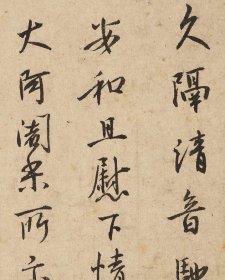 久隔清音馳
安和且慰下情
大阿閣來所示